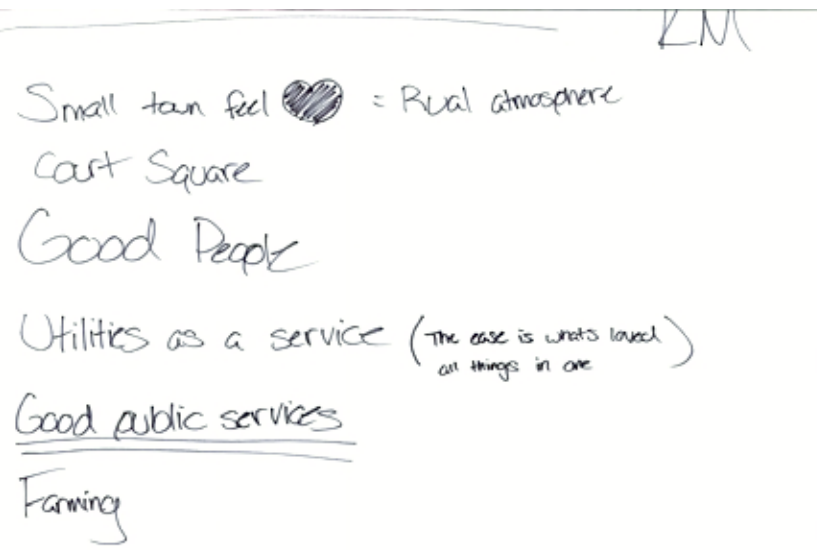 KM
Small town feel = Rual atmosphere
Court Square
Good People
Utilities as a service (The ease is whats loved
all things in one)
Good public services
Farming